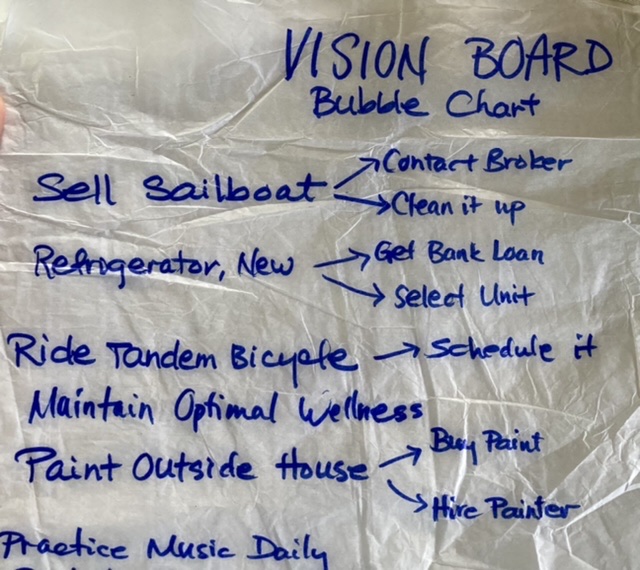 VISION BOARD
Bubble Chart
Sell Sailboat → Contact Broker
→ Clean it up
Refrogerator, New → Get Bank Loan
→ Select Unit
Ride Tandem Bicycle → Schedule it
Maintain Optimal Wellness
Paint Outside House → Buy Paint
→ Hire Painter
Practice Music Daily